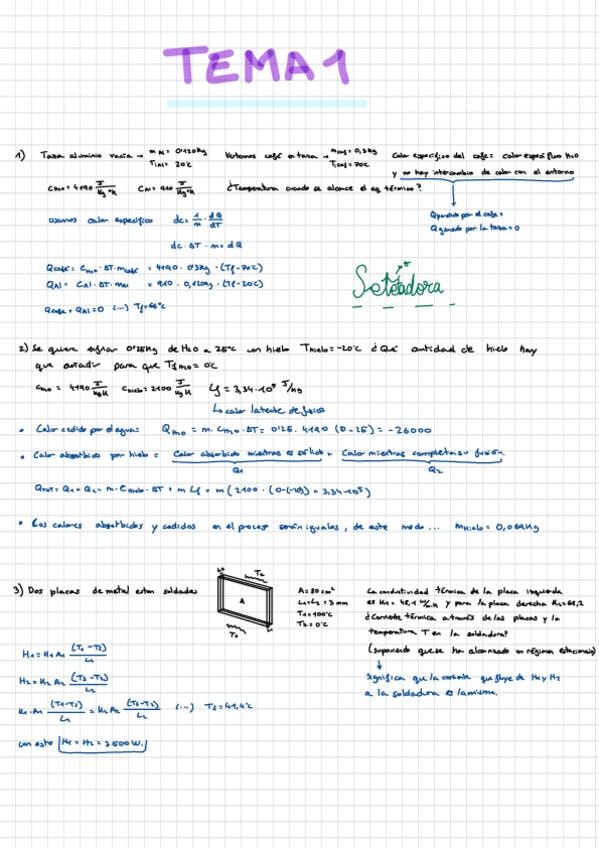 TEMA 1
1) Taza aluminio vacía → m Al = 0'120kg Vertemos café en taza → m café = 0,3kg Calor específico del café = calor específico H2O
T iAl = 20°C T icaf = 70°C y no hay intercambio de calor con el entorno
C H2O = 4190 J/kg·K C Al = 910 J/kg·K ¿Temperatura cuando se alcance el eq. térmico?
Q perdido por el café +
Q ganado por la taza = 0
Usamos calor específico dc = 1/m · dQ/dT
dc · ΔT · m = dQ
Q café = C H2O · ΔT · m café = 4190 · 0'3kg · (Tf - 70°C)
Q Al = C Al · ΔT · m Al = 910 · 0,120kg · (Tf - 20°C)
Seteadora
Q café + Q Al = 0 (...) Tf = 66°C
2) Se quiere enfriar 0'25kg de H2O a 25°C con hielo T hielo = -20°C ¿Qué cantidad de hielo hay
que añadir para que T f H2O = 0°C
C H2O = 4190 J/kg K C hielo = 2100 J/kg K Lf = 3,34·10⁵ J/kg
↳ calor latente de fusión
• Calor cedido por el agua: Q H2O = m · C H2O · ΔT = 0'25 · 4190 (0 - 25) = -26000
• Calor absorbido por hielo = Calor absorbido mientras es sólido + Calor mientras completa su fusión.
Q1 Q2
Q TOT = Q1 + Q2 = m · C Hielo · ΔT + m Lf = m (2100 · (0-(-20)) + 3,34·10⁵)
• Los calores absorbidos y cedidos en el proceso serán iguales, de este modo ... m Hielo = 0,069kg
3) Dos placas de metal estan soldadas
L1 T2
A
T1 L2
A = 80 cm²
L1 = L2 = 3 mm
T1 = 100°C
T2 = 0°C
La conductividad térmica de la placa izquierda
es K1 = 48,1 W/m·K y para la placa derecha K2 = 68,2
¿Corriente térmica a través de las placas y la
temperatura T en la soldadura?
(suponiendo que se ha alcanzado en régimen estacionario)
↓
Significa que la corriente que fluye de H1 y H2
a la soldadura es la misma.
H1 = K1 A1 (T1 - T3)/L1
H2 = K2 A2 (T3 - T2)/L2
K1 · A1 (T1 - T3)/L1 = K2 A2 (T3 - T2)/L2 (...) T3 = 41,4°C
con esto H1 = H2 = 7500 W.